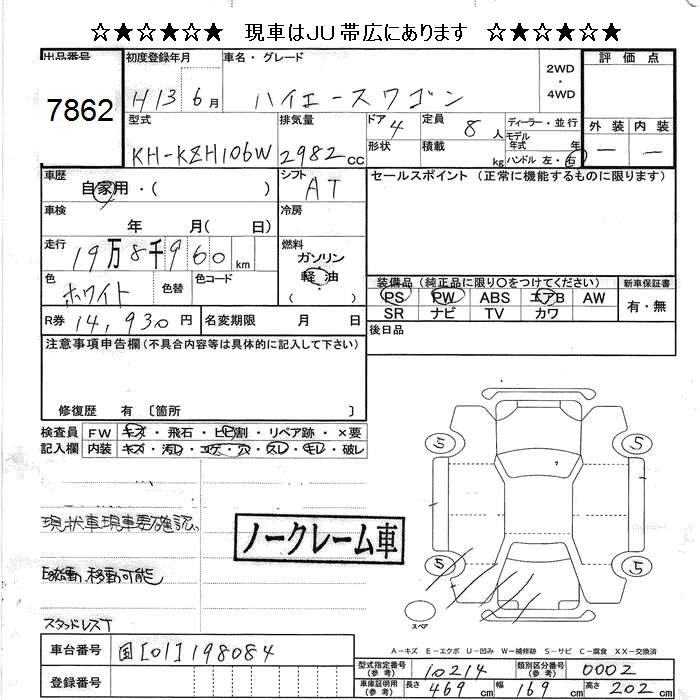 ☆★☆★☆★☆ 現車はJU帯広にあります ☆★☆★☆★☆
出品番号 初度登録年月 車名・グレード 評価点
7862 H13 6月 ハイエースワゴン 2WD・4WD
型式 排気量 ドア 定員 ディーラー・並行 外装 内装
KH-KZH106W 2982cc 4 8人 モデル年式 年 — —
形状 積載 kg ハンドル 左・右
車歴 シフト セールスポイント (正常に機能するものに限ります)
自家用・( ) AT
車検 冷房
年 月( 日)
走行 燃料
19万8千960km ガソリン
軽油
( )
色 色替 色コード
ホワイト
装備品 (純正品に限り〇をつけてください) 新車保証書
PS PW ABS エアB AW 有・無
SR ナビ TV カワ
R券 14,930円 名変期限 月 日
後日品
注意事項申告欄(不具合内容等は具体的に記入して下さい)
修復歴 有 〔箇所 〕
検査員 FW キズ・飛石・ヒビ割・リペア跡・×要
記入欄 内装 キズ・汚レ・コゲ・穴・スレ・キレ・破レ
5 5
現状車現車要確認。
ノークレーム車
自走、移動可能
5 5
スタッドレスT
スペア
A-キズ E-エクボ U-凹み W-補修跡 S-サビ C-腐食 XX-交換済
車台番号 国[01]198084
型式指定番号(参考) 10214 類別区分番号(参考) 0002
登録番号
車庫証明用(参考) 長さ 469cm 幅 169cm 高さ 202cm